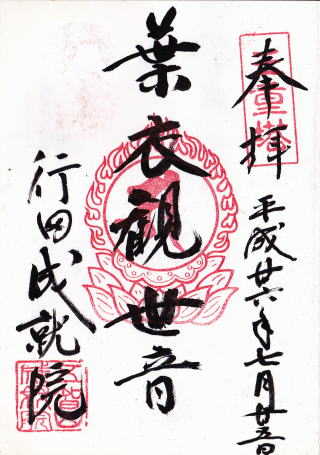 三重塔
奉拝
平成廿六年七月廿五日
葉衣觀世音
行田成就院